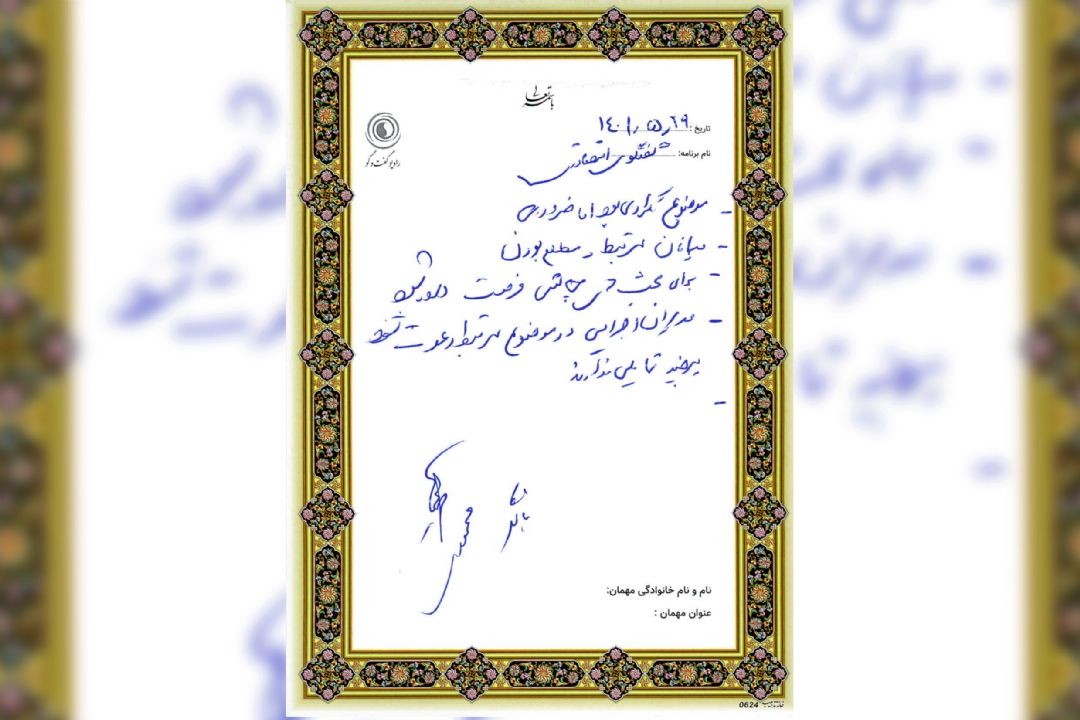 باسمه تعالی
رادیو گفت و گو
تاریخ: ۱۴۰۱/۵/۱۹
نام برنامه: گفتگوی اقتصادی
- موضوع تکراری بود اما ضروری
- میهمانان مرتبط و مطلع بودن
- برای بحث چالشی فرصت داده شود
- مدیران اجرایی در موضوع مرتبط دعوت شوند
هرچند تمایلی ندارند
-
باتشکر
محسن
نام و نام خانوادگی مهمان:
عنوان مهمان :
0624